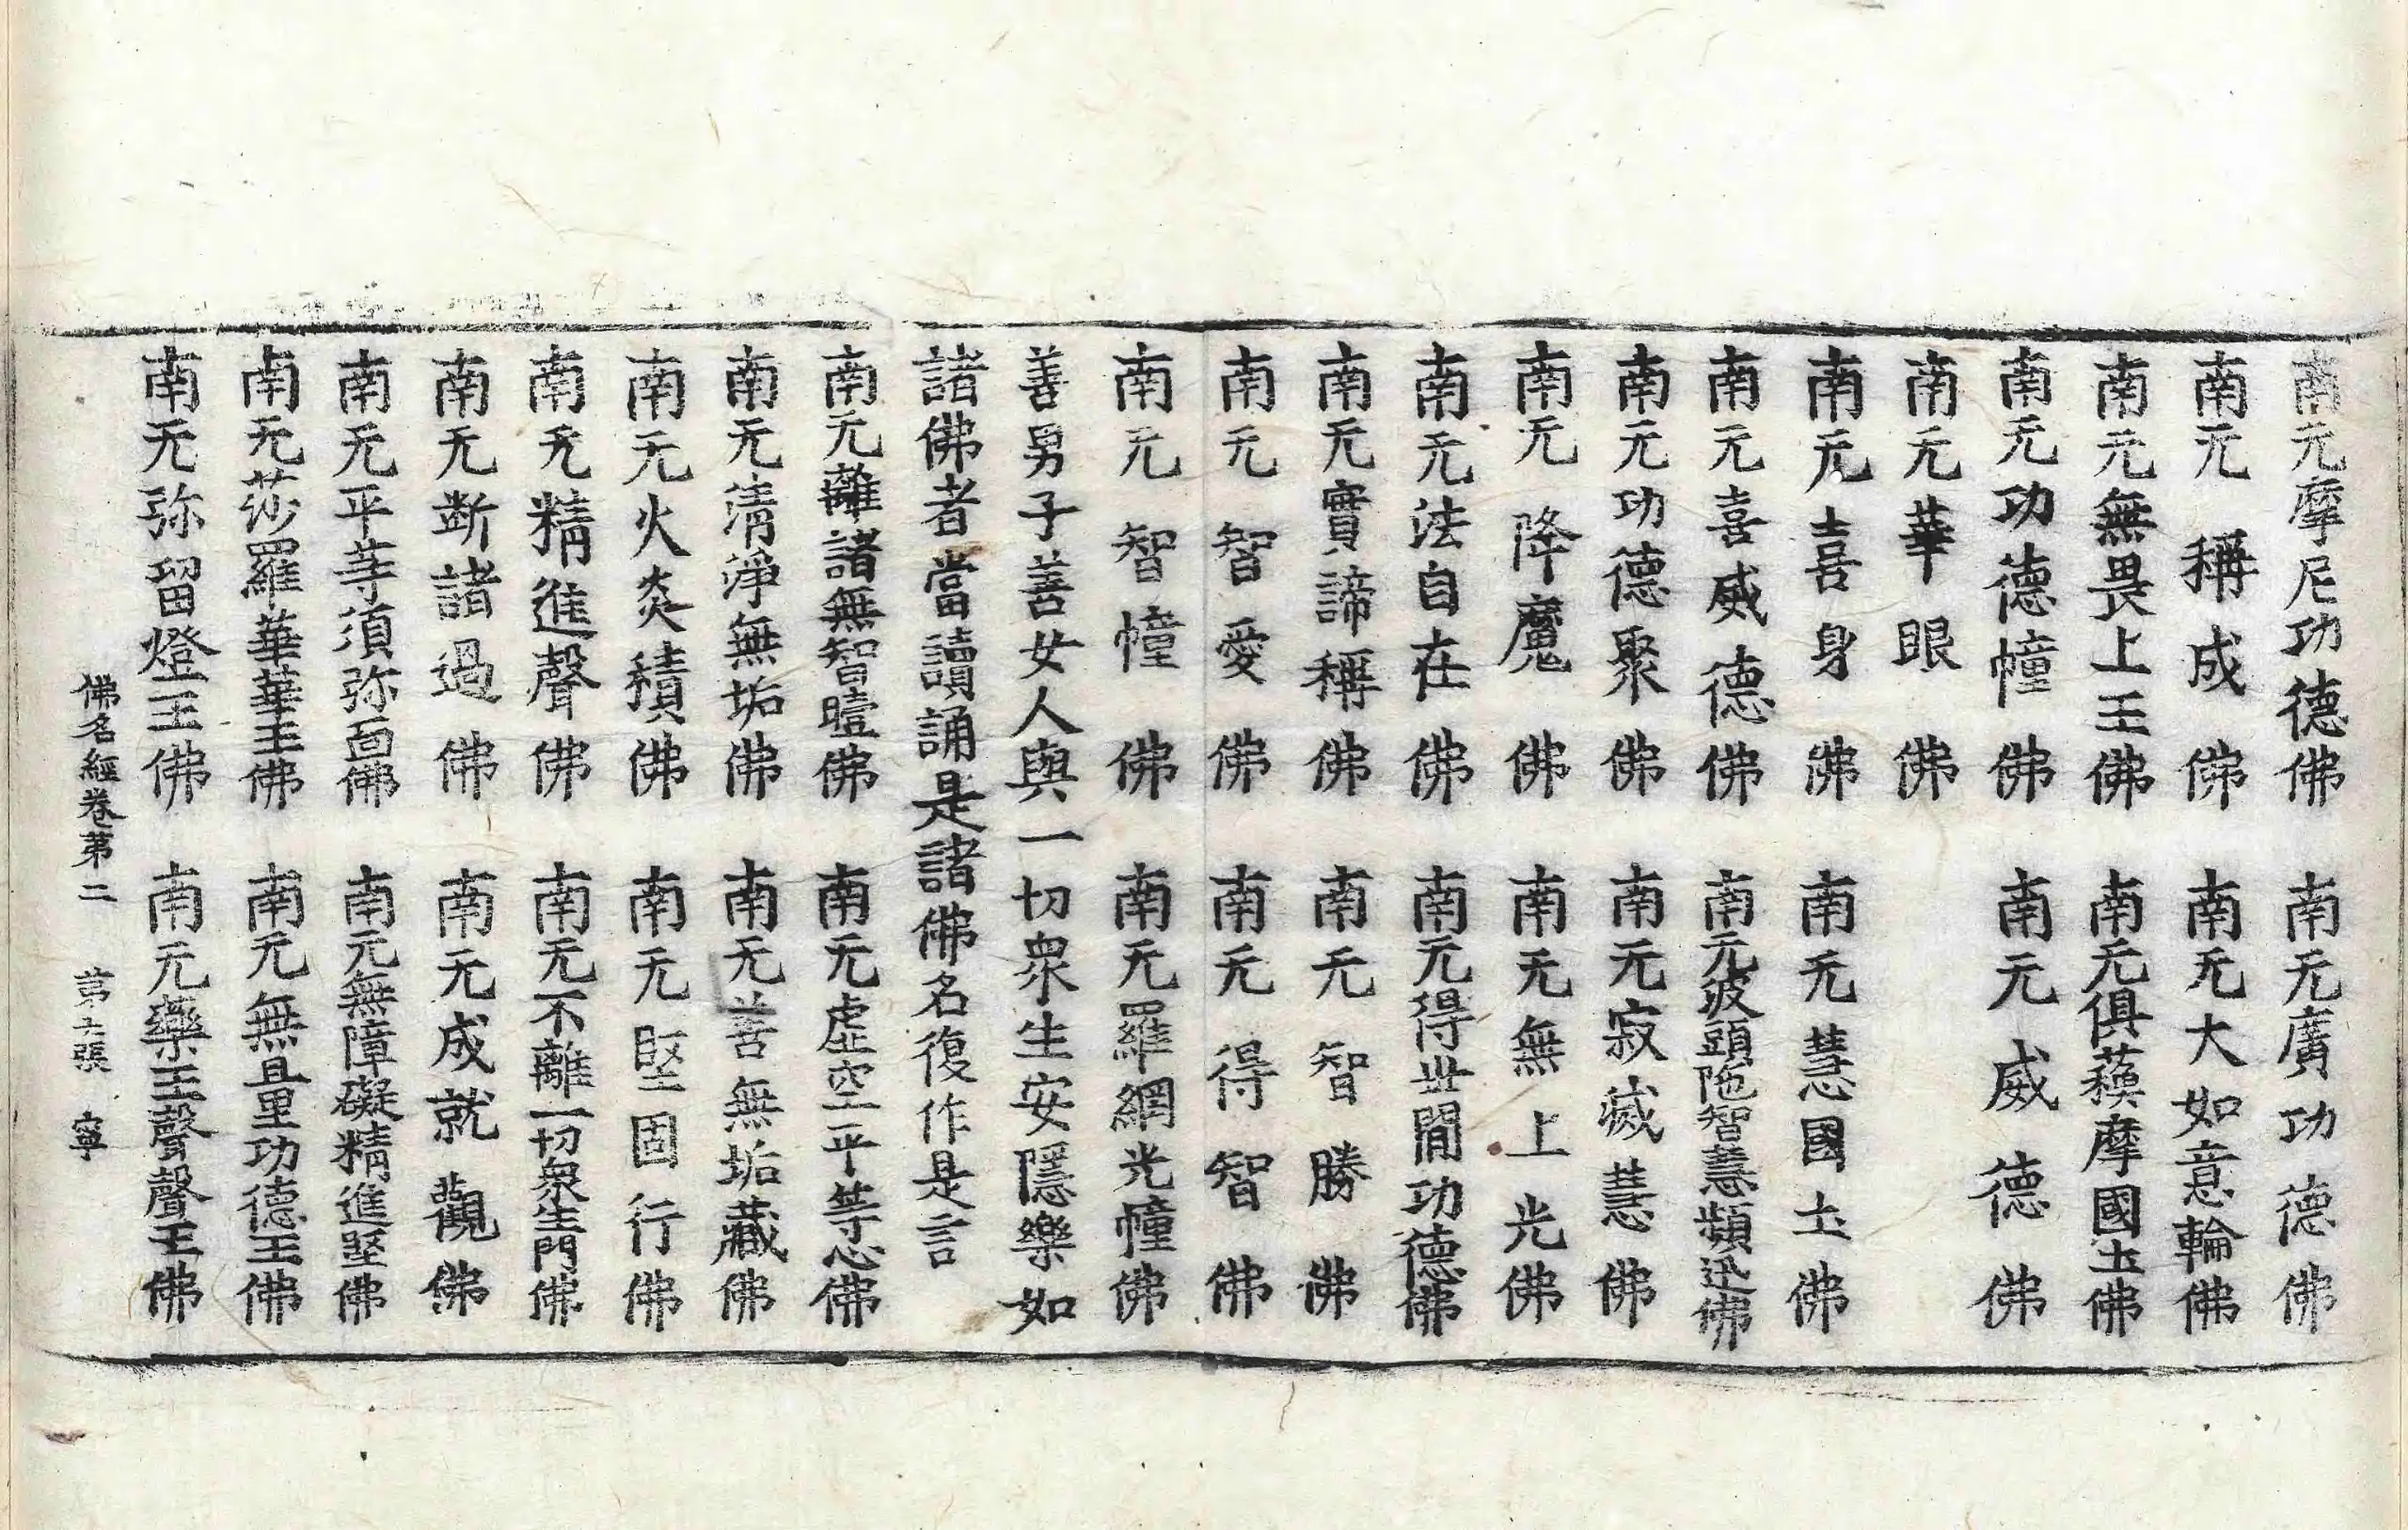 南无摩尼功德佛　南无廣功德佛
南无稱成佛　南无大如意輪佛
南无無畏上王佛　南无俱蘓摩國土佛
南无功德幢佛　南无威德佛
南无華眼佛
南无喜身佛　南无慧國土佛
南无喜威德佛　南无波頭陁智慧頻迅佛
南无功德聚佛　南无寂滅慧佛
南无降魔佛　南无無上光佛
南无法自在佛　南无得世間功德佛
南无實諦稱佛　南无智勝佛
南无智愛佛　南无得智佛
南无智幢佛　南无羅網光幢佛
善男子善女人與一切衆生安隱樂如
諸佛者當讀誦是諸佛名復作是言
南无離諸無智曀佛　南无虛空平等心佛
南无清淨無垢佛　南无善無垢藏佛
南无火炎積佛　南无堅固行佛
南无精進聲佛　南无不離一切衆生門佛
南无斷諸過佛　南无成就觀佛
南无平等須弥面佛　南无無障礙精進堅佛
南无莎羅華華王佛　南无無量功德王佛
南无弥留燈王佛　南无藥王聲聲王佛
佛名經卷第二　第　張　寧